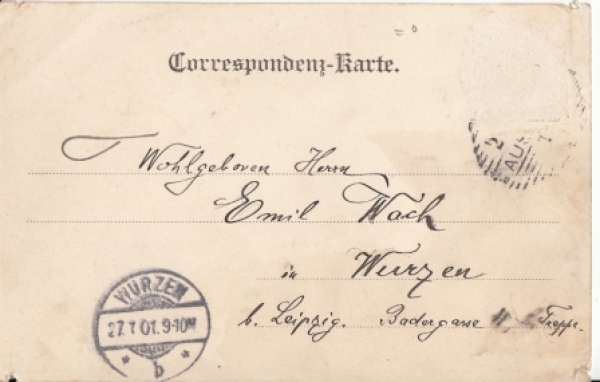 Correspondenz-Karte.
Wohlgeboren Herrn
Emil Wach
in Wurzen
b. Leipzig. Badergasse 4, Treppe.
WURZEN
27.1.01.9-10V
* b *